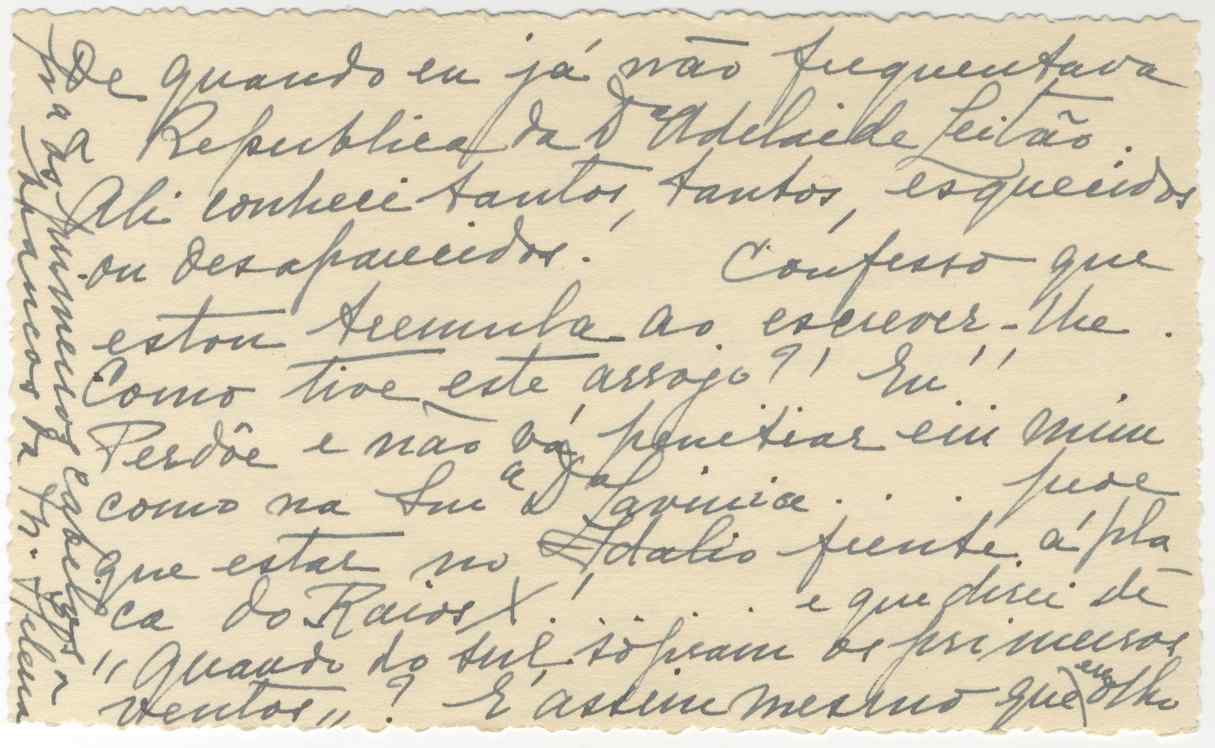 De quando eu já não frequentava
a Republica da Dª Adelaide Leitão.
Ali conheci tantos, tantos, esquecidos
ou desaparecidos. Confesso que
estou tremula ao escrever-lhe.
Como tive este arrojo?! Eu!!
Perdôe e não vá penetrar em mim
como na Sua Dª Lavinia... 
que estar no Idalio frente á pla
ca do Raios X!... e que direi de
"Quando do sul sopram os primeiros
ventos"? E' assim mesmo que eu olho
pra os primeiros cabelos
brancos da M. Helena